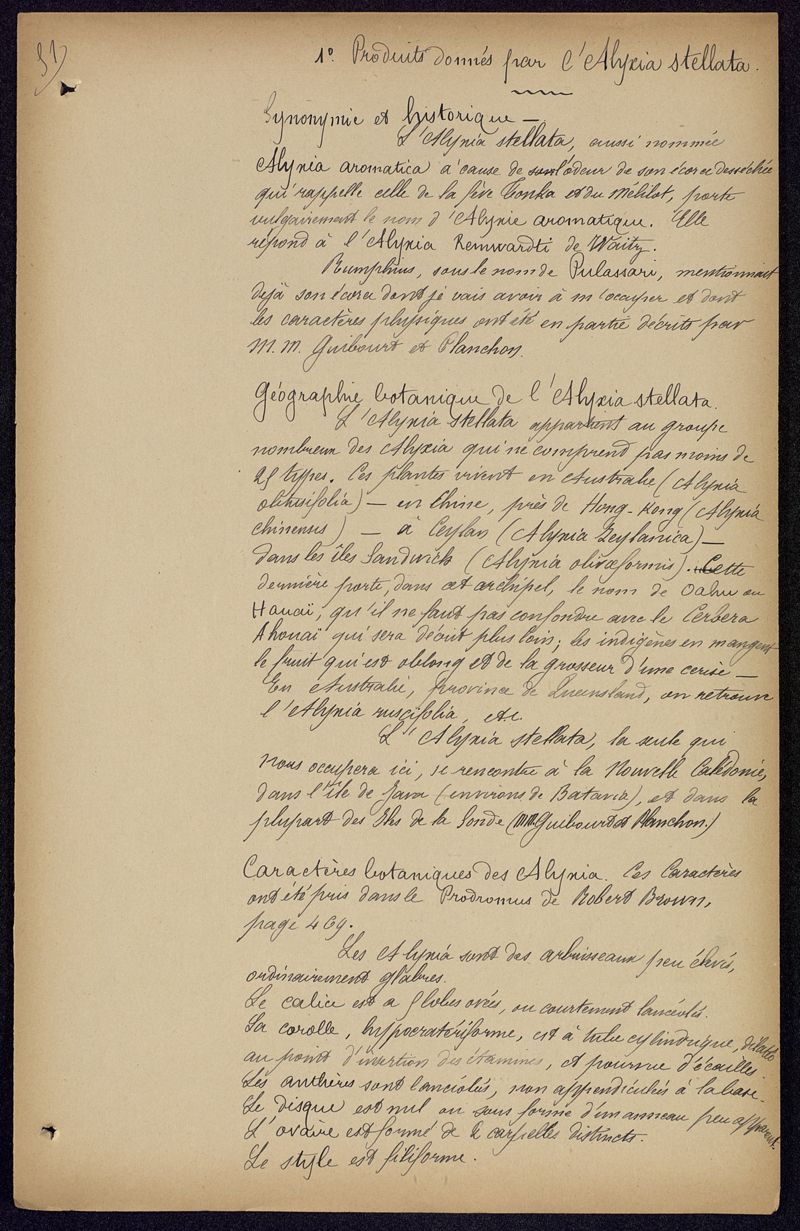 31)
1º. Produits donnés par l'Alyxia stellata.
Synonymie et historique —
L'Alyxia stellata, aussi nommée
Alyxia aromatica à cause de l'odeur de son écorce desséchée
qui rappelle celle de la fève Tonka et du Mélilot, porte
vulgairement le nom d'Alyxie aromatique. Elle
répond à l'Alyxia Reinwardti de Waitz.
Rumphius, sous le nom de Pulassari, mentionnait
déjà son écorce dont je vais avoir à m'occuper et dont
les caractères physiques ont été en partie décrits par
M.M. Guibourt et Planchon.
Géographie botanique de l'Alyxia stellata.
L'Alyxia stellata appartient au groupe
nombreux des Alyxia qui ne comprend pas moins de
25 types. Ces plantes vivent en Australie (Alyxia
obtusifolia) — en Chine, près de Hong-Kong (Alyxia
chinensis) — à Ceylan (Alyxia Zeylanica) —
dans les îles Sandwich (Alyxia olivœformis). Cette
dernière porte, dans cet archipel, le nom de Oahu ou
Hauaï, qu'il ne faut pas confondre avec le Cerbera
Ahouaï qui sera décrit plus loin; les indigènes en mangent
le fruit qui est oblong et de la grosseur d'une cerise —
En Australie, province de Queensland, on retrouve
l'Alyxia ruscifolia, etc.
L'Alyxia stellata, la seule qui
nous occupera ici, se rencontre à la Nouvelle Calédonie,
dans l'île de Java (environs de Batavia), et dans la
plupart des Iles de la Sonde (MM. Guibourt et Planchon.)
Caractères botaniques des Alyxia. Ces Caractères
ont été pris dans le Prodromus de Robert Brown,
page 469.
Les Alyxia sont des arbrisseaux peu élevés,
ordinairement glabres.
Le calice est à 5 lobes ovés, ou courtement lancéolés.
La corolle, hypocratériforme, est à tube cylindrique, dilaté
au point d'insertion des étamines, et pourvue d'écailles.
Les anthères sont lancéolés, non appendiculés à la base.
Le disque est nul ou sous forme d'un anneau peu apparent.
L'ovaire est formé de 2 carpelles distincts.
Le style est filiforme.